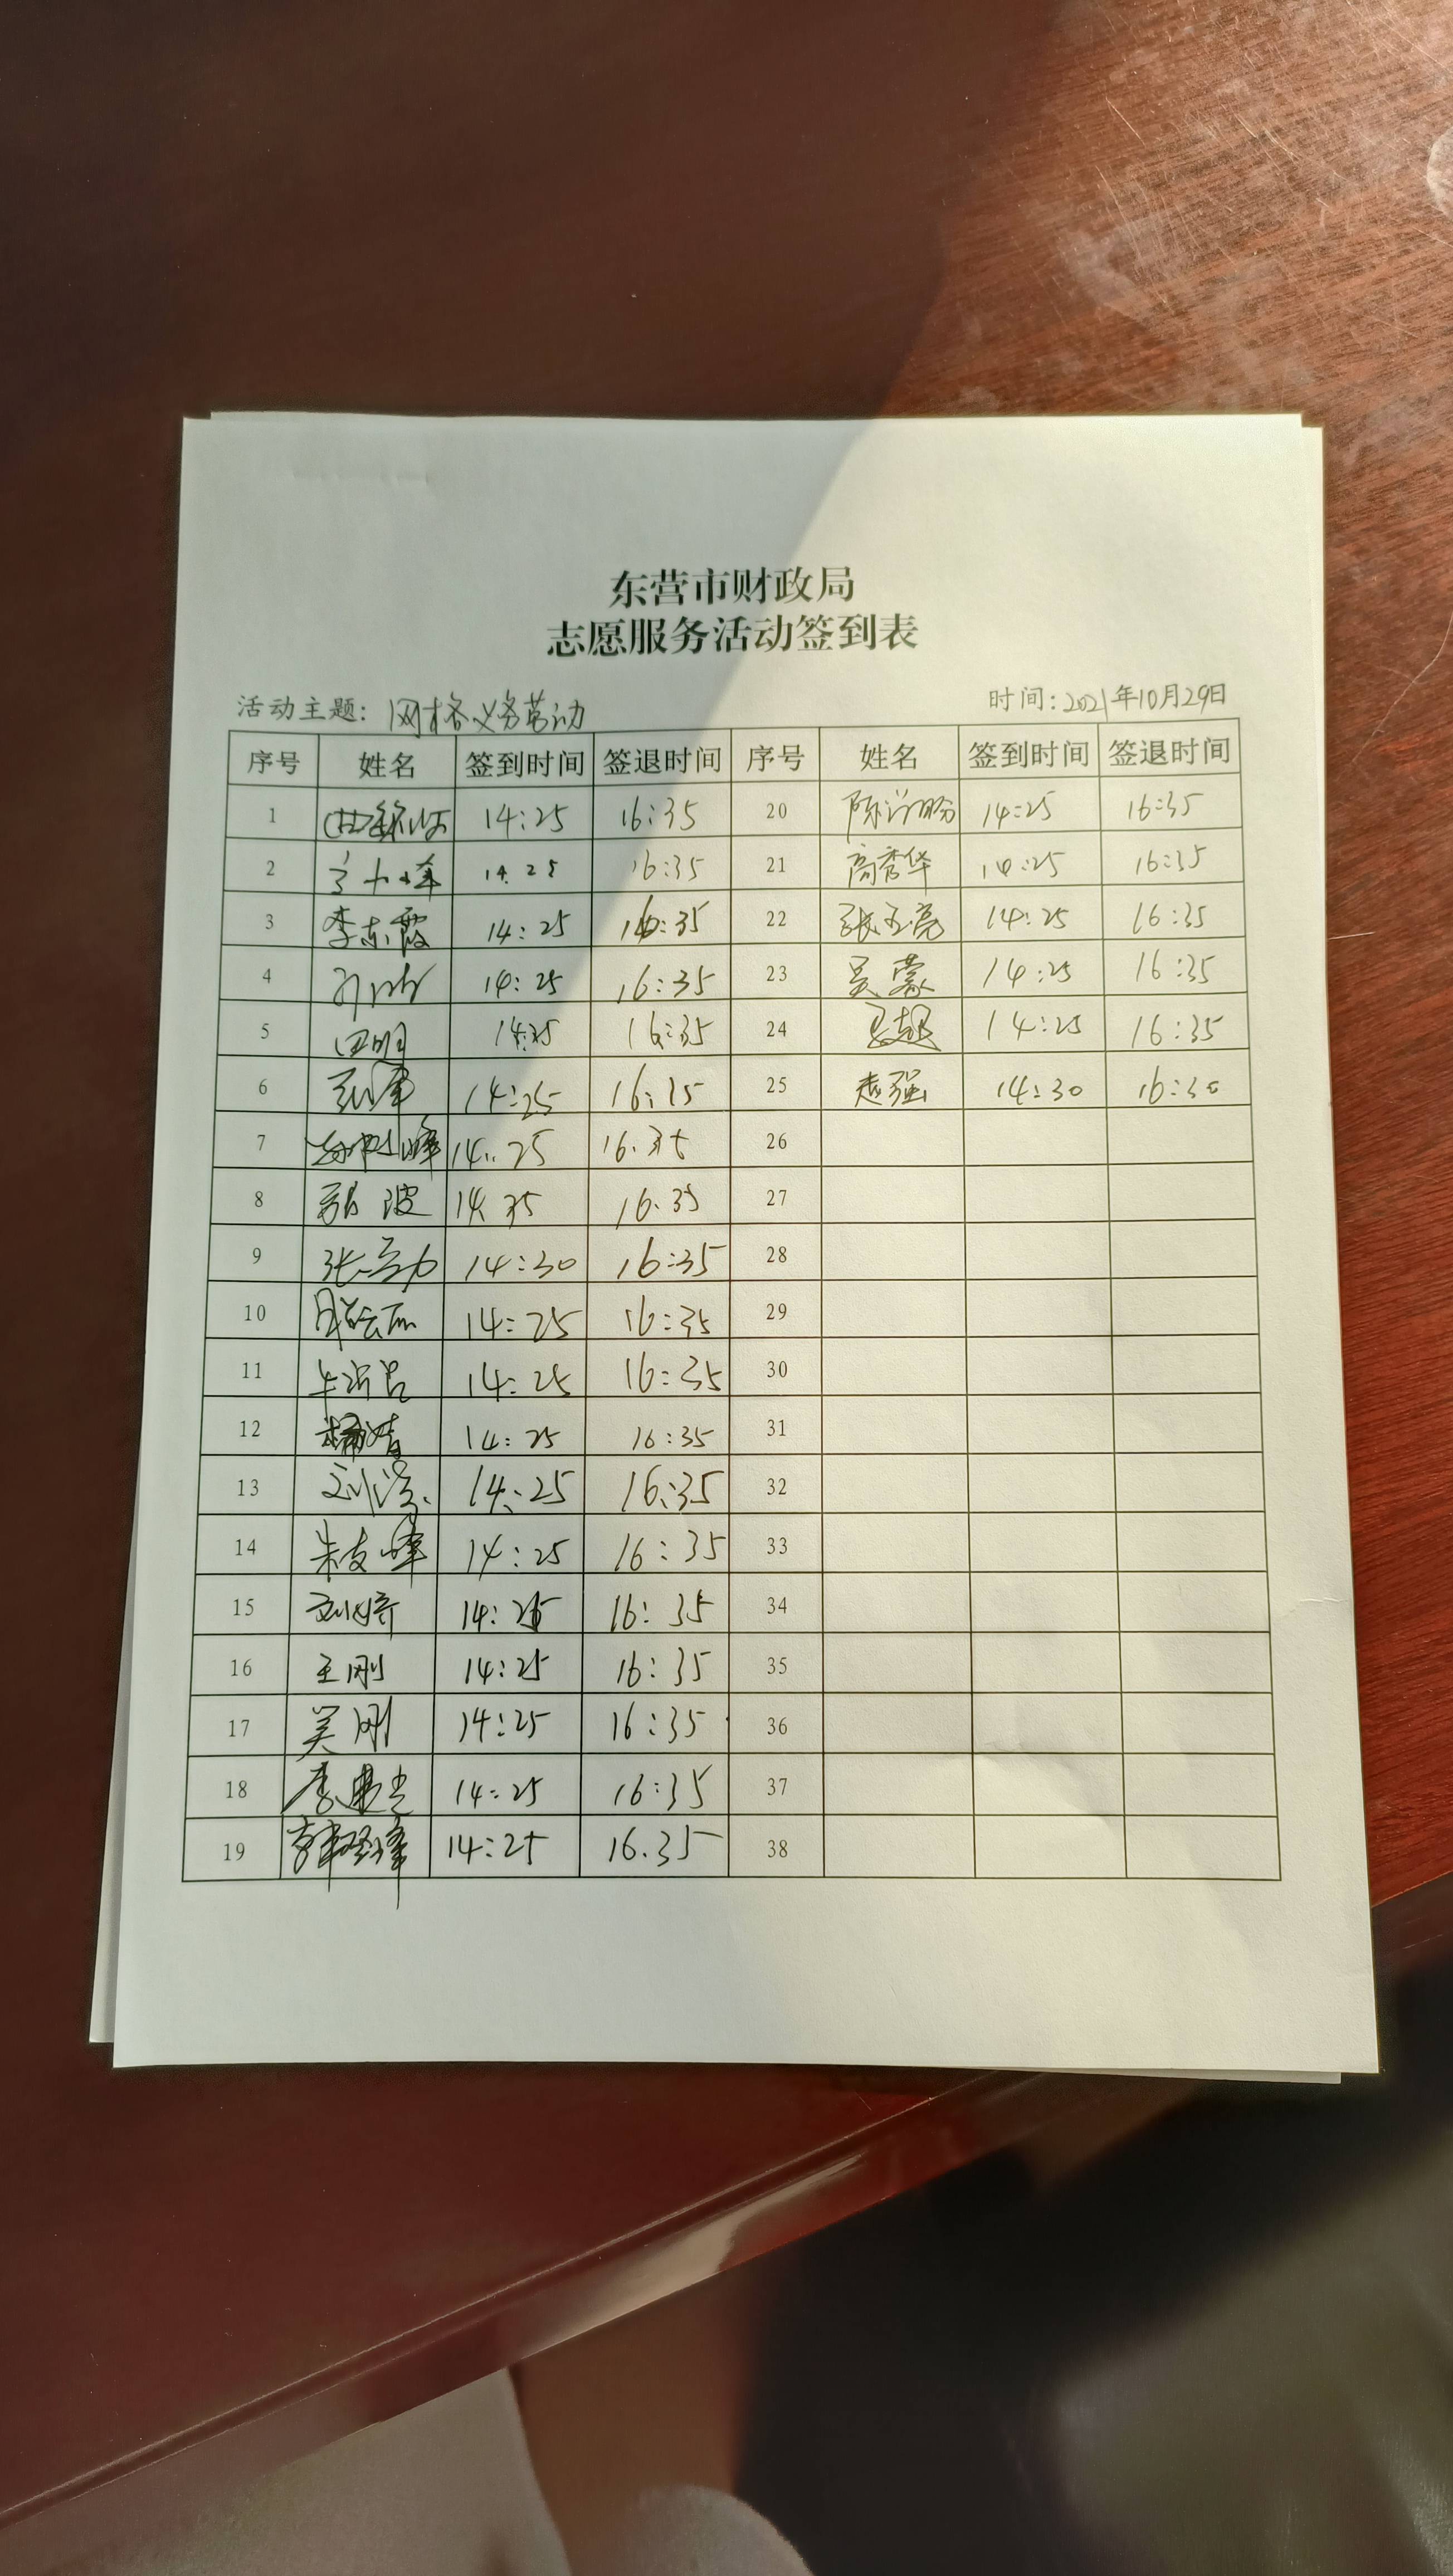 东营市财政局
志愿服务活动签到表
活动主题：网格义务劳动 时间：2021年10月29日
序号 姓名 签到时间 签退时间 序号 姓名 签到时间 签退时间
1 14:25 16:35 20 14:25 16:35
2 14.25 16:35 21 高秀华 14:25 16:35
3 李东霞 14:25 16:35 22 张玉亮 14:25 16:35
4 14:25 16:35 23 吴蒙 14:25 16:35
5 田明 16:35 24 14:25 16:35
6 14:25 25 赵强 14:30 16:30
7 14..25 16.35 26
8 16.35 27
9 14:30 16:35 28
10 14:25 16:35 29
11 14:25 16:35 30
12 14:25 16:35 31
13 刘 14:25 16:35 32
14 朱友峰 14:25 16:35 33
15 刘婷 14:25 16:35 34
16 王刚 14:25 16:35 35
17 吴刚 14:25 16:35 36
18 李 14:25 16:35 37
19 14:25 16.35 38